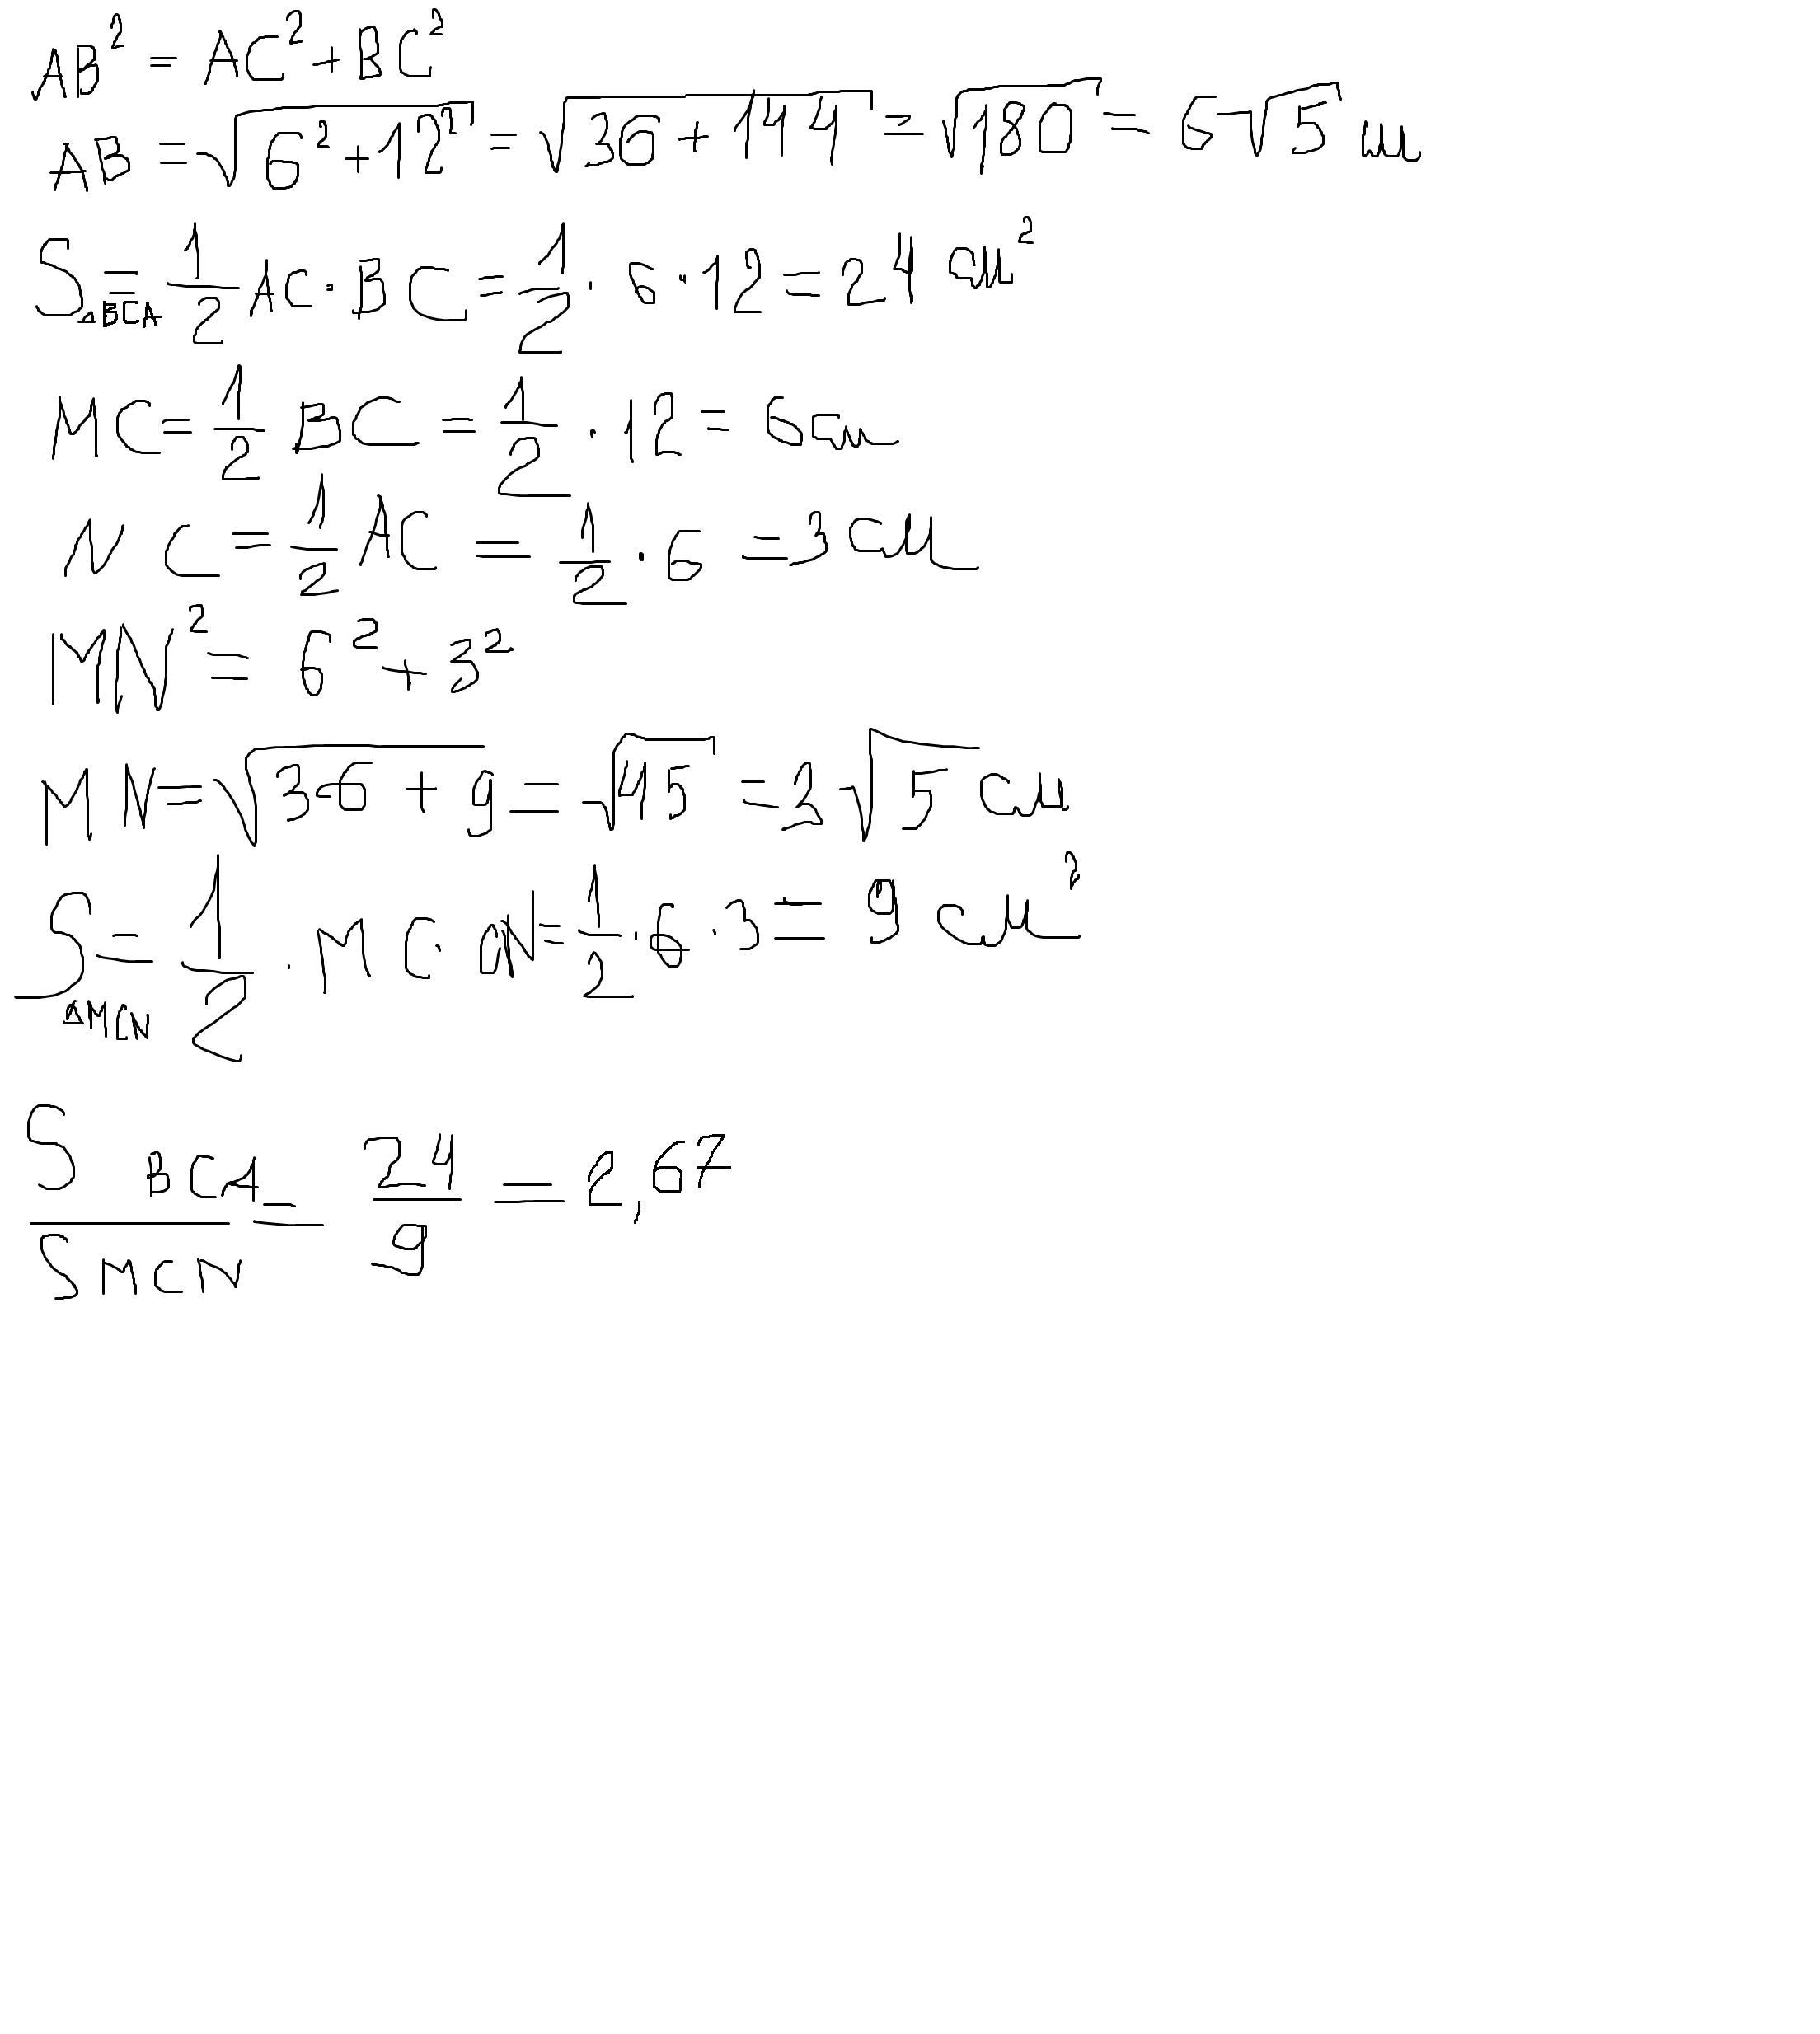 AB² = AC² + BC²
AB = √(6² + 12²) = √(36 + 144) = √180 = 6√5 см
S△BCA = 1/2 AC · BC = 1/2 · 6 · 12 = 24 см²
MC = 1/2 BC = 1/2 · 12 = 6 см
NC = 1/2 AC = 1/2 · 6 = 3 см
MN² = 6² + 3²
MN = √(36 + 9) = √45 = 3√5 см
S△MCN = 1/2 · MC · CN = 1/2 · 6 · 3 = 9 см²
S BCA / S MCN = 24/9 = 2,67